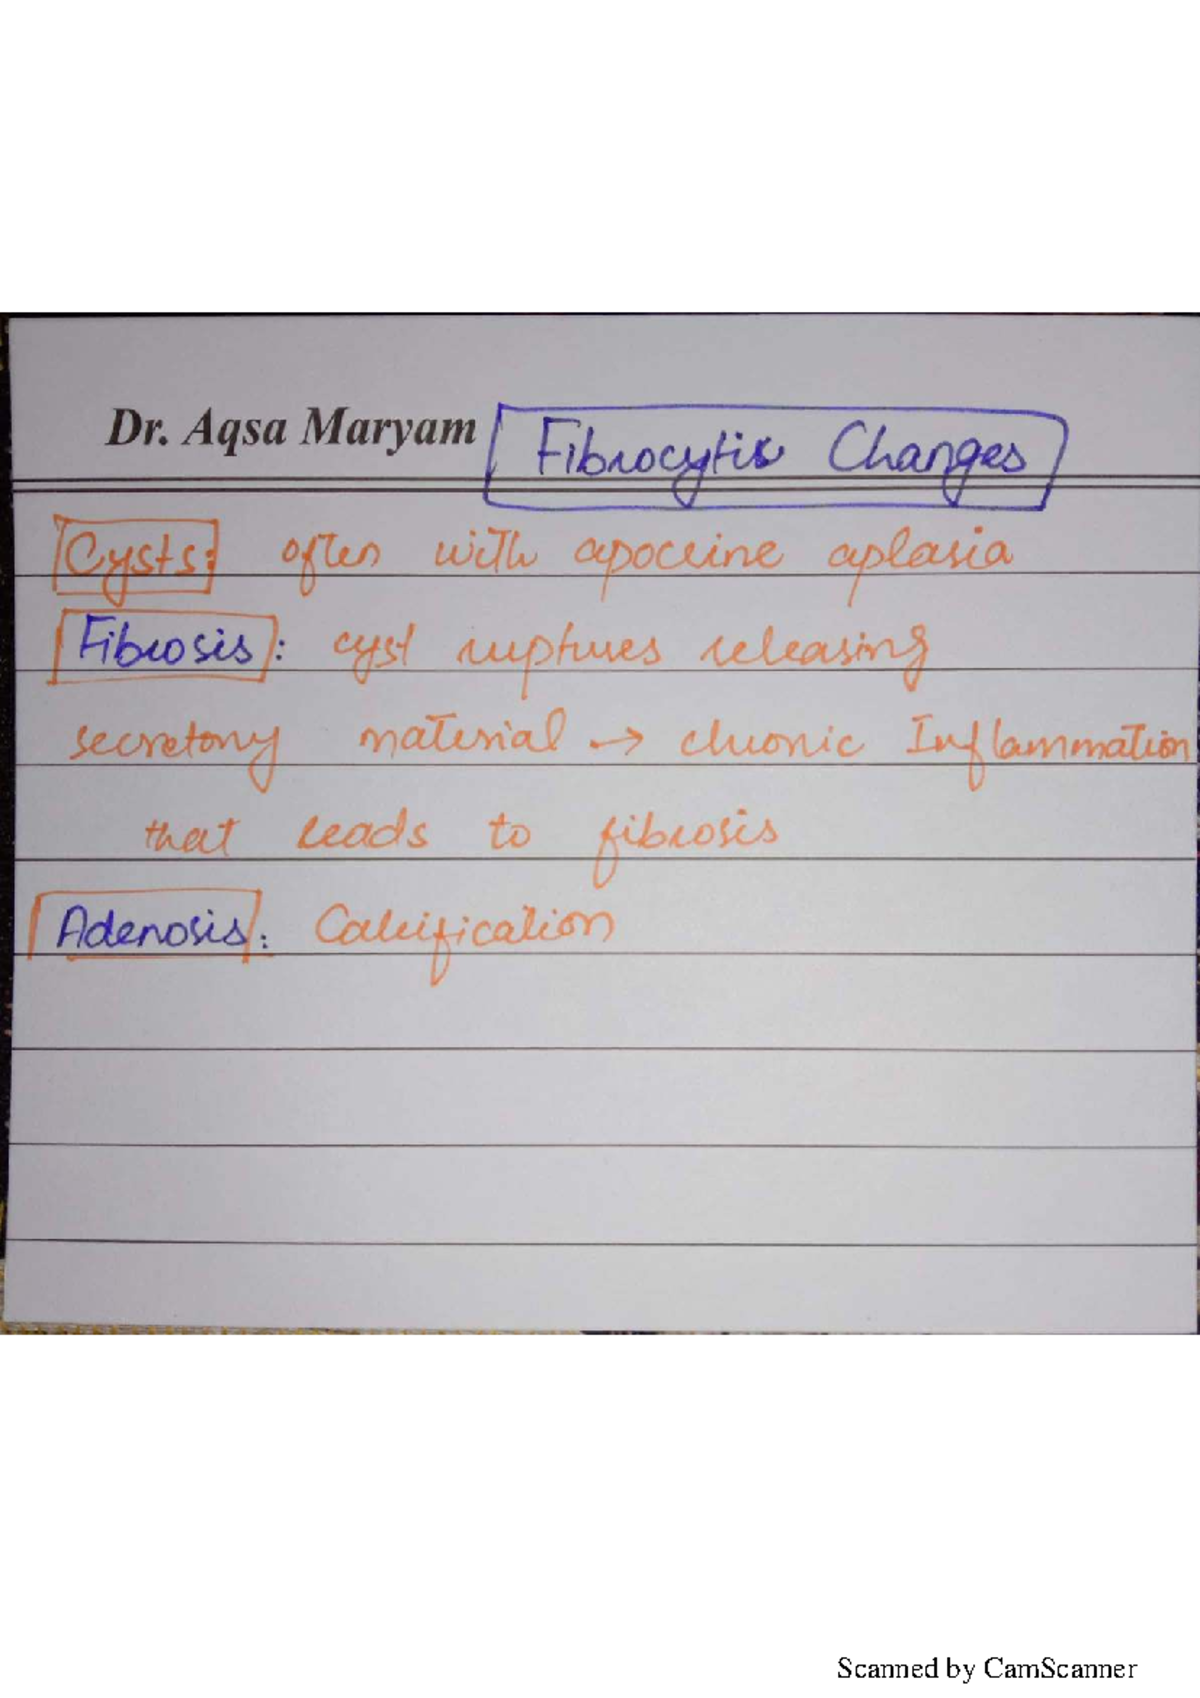 Dr. Aqsa Maryam Fibrocytic Changes
Cysts: often with apocrine aplasia
Fibrosis: cyst ruptures releasing
secretory material → chronic Inflammation
that leads to fibrosis
Adenosis: Calcification
Scanned by CamScanner